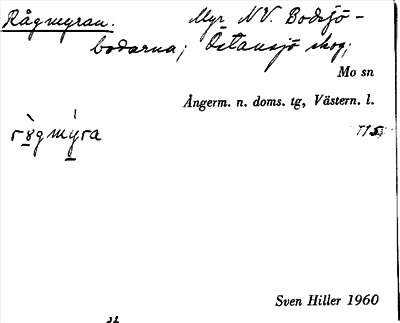 Rågmyran. Myr NV. Bodsjö-
bodarna; Östansjö skog;
Mo sn
Ångerm. n. doms. tg, Västern. l.
115
Sven Hiller 1960